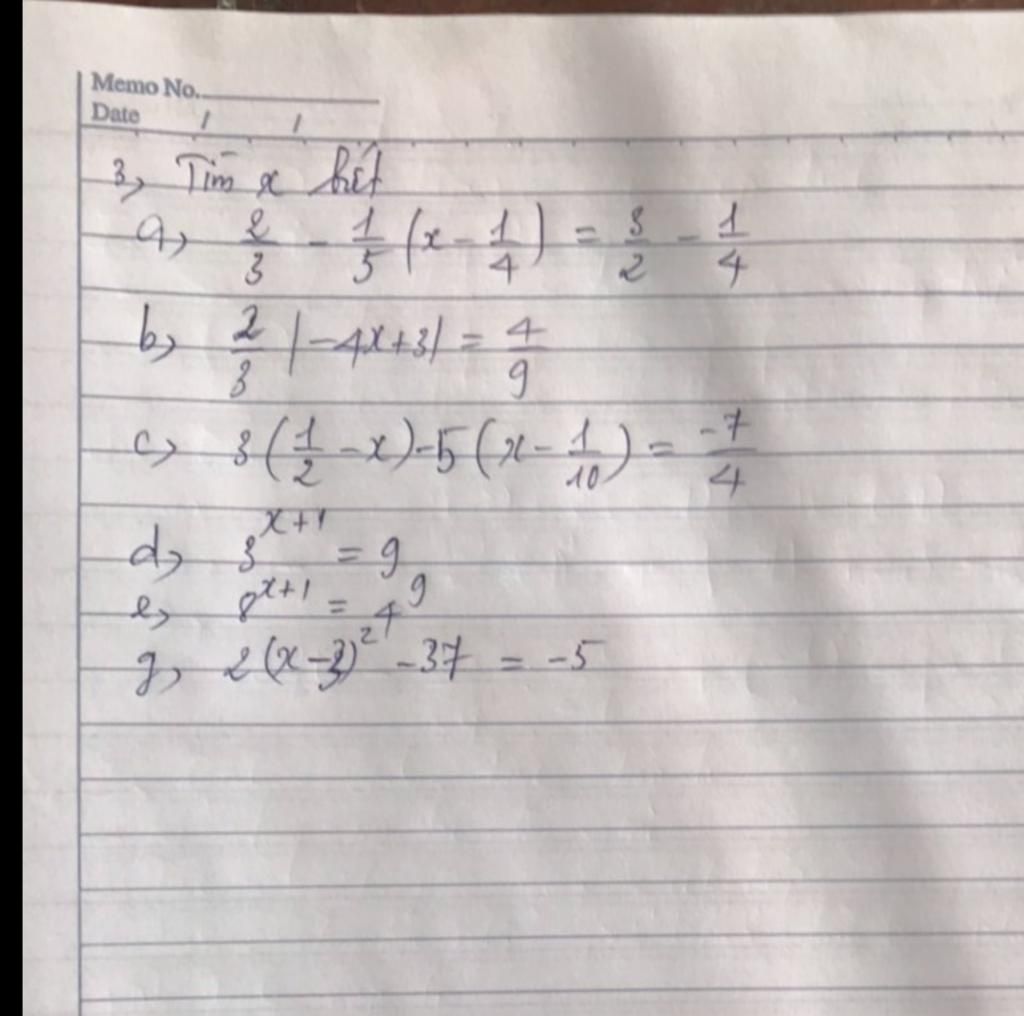 Memo No.
Date / /
3, Tìm x biết
a, 2/3 - 1/5 (x - 1/4) = 3/2 - 1/4
b, 2/3 |-4x+3| = 4/9
c, 3(1/2 - x) - 5(x - 1/10) = -7/4
d, 3^(x+1) = 9
e, 8^(x+1) = 4^9
g, 2(x-3)^2 - 37 = -5